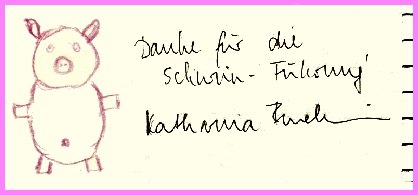 Danke für die
Schwein-Führung
Katharina